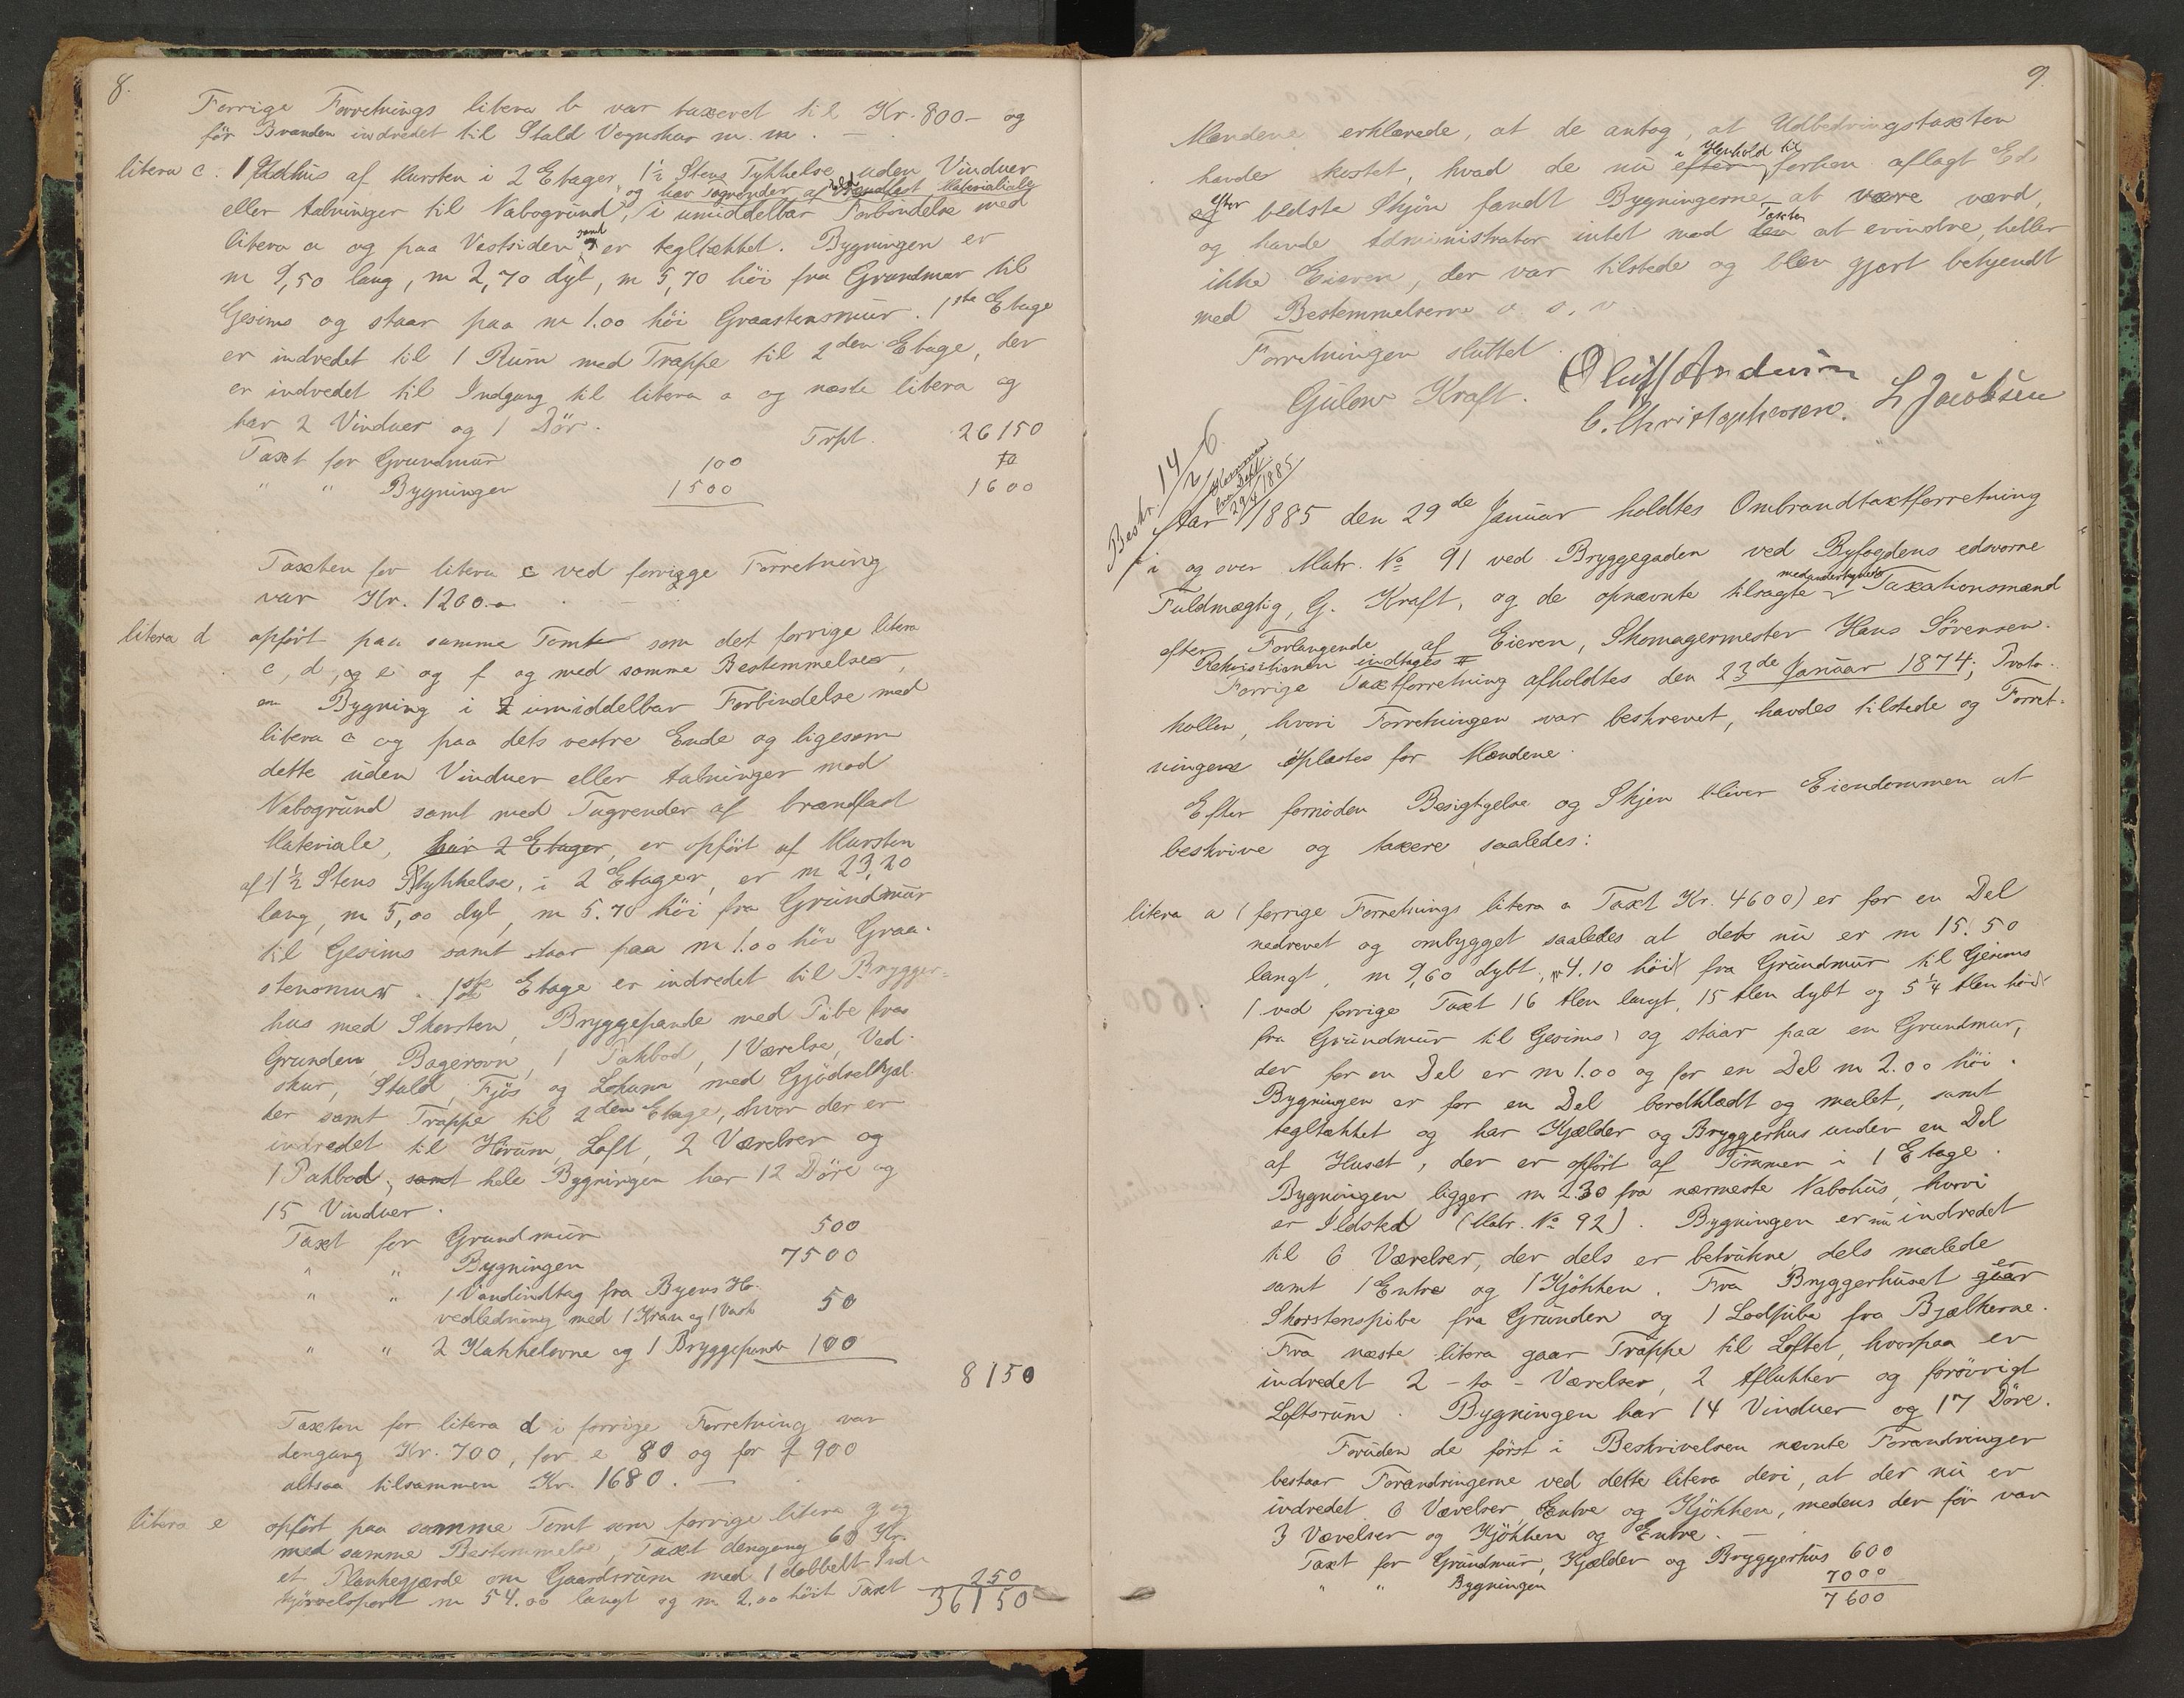 8.
Forrige Forretnings litera b var taxeret til Kr. 800 - og
før Branden indredet til Stald Vognskur m. m. -
litera c. 1 Sidehus af Mursten i 2 Etager, 1½ Stens Tykkelse, uden Vinduer
og har Tagrender af brandfast Materiale
eller aabninger til Nabogrund, i umiddelbar Forbindelse med
litera a og paa Vestsiden samt er tegltækket. Bygningen er
m 9,50 lang, m 2,70 dyb, m 5,70 høi fra Grundmur til
Gesims og staar paa m 1.00 høi Graastensmur. 1ste Etage
er indredet til 1 Rum med Trappe til 2den Etage, der
er indredet til Indgang til litera a og næste litera og
har 2 Vinduer og 1 Dør.
Trpt. 26150
Taxt for Grundmur 100
" " Bygningen 1500 1600
Taxten for litera c ved forrige Forretning
var Kr. 1200.-
litera d opført paa samme Tomt som det forrige litera
c, d, og e og f og med samme Bestemmelser,
en Bygning i umiddelbar Forbindelse med
litera c og paa dets vestre Ende og ligesom
dette uden Vinduer eller aabninger mod
Nabogrund samt med Tagrender af brandfast
Materiale, har 2 Etager, er opført af Mursten
af 1½ Stens Tykkelse, i 2 Etager, er m 23,20
lang, m 5,00 dyb, m 5.70 høi fra Grundmur
til Gesims samt staar paa m 1.00 høi Graa-
stensmur. 1ste Etage er indredet til Brygger-
hus med Skorsten, Bryggepande med Pibe fra
Grunden, Bagerovn, 1 Pakbod, 1 Værelse, Ved-
skur, Stald, Fjøs og Lokum med Gjødselkjæl-
ker samt Trappe til 2den Etage, hvor der er
indredet til Hørum, Loft, 2 Værelser og
1 Pakbod, samt hele Bygningen har 12 Døre og
15 Vinduer.
Taxt for Grundmur 500
" " Bygningen 7500
" " 1 Vandindtag fra Byens Ho-
vedledning med 1 Kran og 1 Vask 50
" " 2 Kakkelovne og 1 Bryggepande 100
8150
Taxten for litera d i forrige Forretning var
dengang Kr. 700, for e 80 og for f 900
altsaa tilsammen Kr. 1680. -
litera e opført paa samme Tomt som forrige litera g og
med samme Bestemmelse, Taxt dengang 60 Kr.
et Plankegjærde om Gaardsrum med 1 dobbelt Ind-
kjørselsport m 54.00 langt og m 2.00 høit Taxt 250
36150
9.
Mændene erklærede, at de antog, at Udbedringstaxten
havde kostet, hvad de nu efter i Henhold til forhen aflagt Ed
og efter bedste Skjøn fandt Bygningerne at være værd,
og havde Administrator intet mod Taxten at erindre, heller
ikke Eieren, der var tilstede og blev gjort bekjendt
med Bestemmelserne o. s. v.
Forretningen sluttet.
Gulow Kraft. Oluf Andersen
C. Christophersen. L Jacobsen
Beskr. 14/2 6.
Kommen
fra Dept.
29/4 1885
Aar 1885 den 29de Januar holdtes Ombrandtaxtforretning
i og over Matr. No 91 ved Bryggegaden ved Byfogdens edsvorne
Fuldmægtig, G. Kraft, og de opnævnte tilsagte Taxationsmænd
efter Forlangende af Eieren, Skomagermester Hans Sørensen.
Rekvisitionen indtages #
Forrige Taxtforretning afholdtes den 23de Januar 1874; Proto-
kollen, hvori Forretningen var beskrevet, havdes tilstede og Forret-
ningen oplæstes for Mændene.
Efter fornøden Besigtigelse og Skjøn bliver Eiendommen at
beskrive og taxere saaledes:
litera a (forrige Forretnings litera a Taxt Kr. 4600) er for en Del
nedrevet og ombygget saaledes at dets nu er m 15.50
langt, m 9,60 dybt, m 4.10 høit fra Grundmur til Gesims
(ved forrige Taxt 16 Alen langt, 15 Alen dybt og 5¼ Alen høit
fra Grundmur til Gesims) og staar paa en Grundmur,
der for en Del er m 1.00 og for en Del m 2.00 høi.
Bygningen er for en Del bordklædt og malet, samt
tegltækket og har Kjælder og Bryggerhus under en Del
af Huset, der er opført af Tømmer i 1 Etage.
Bygningen ligger m 2.30 fra nærmeste Nabohus, hvori
er Ildsted (Matr. No 92). Bygningen er nu indredet
til 6 Værelser, der dels er betrukne dels malede
samt 1 Entre og 1 Kjøkken. Fra Bryggerhuset gaar er
Skorstenspibe fra Grunden og 1 Lodpibe fra Bjælkerne.
Fra næste litera gaar Trappe til Loftet, hvorpaa er
indredet 2 - to - Værelser, 2 Aflukker og forøvrigt
Loftsrum. Bygningen har 14 Vinduer og 17 Døre.
Foruden de først i Beskrivelsen nævnte Forandringer
bestaar Forandringerne ved dette litera deri, at der nu er
indredet 6 Værelser, Entre og Kjøkken, medens der før var
3 Værelser og Kjøkken og Entre. -
Taxt for Grundmur, Kjælder og Bryggerhus 600
" " Bygningen 7000
7600